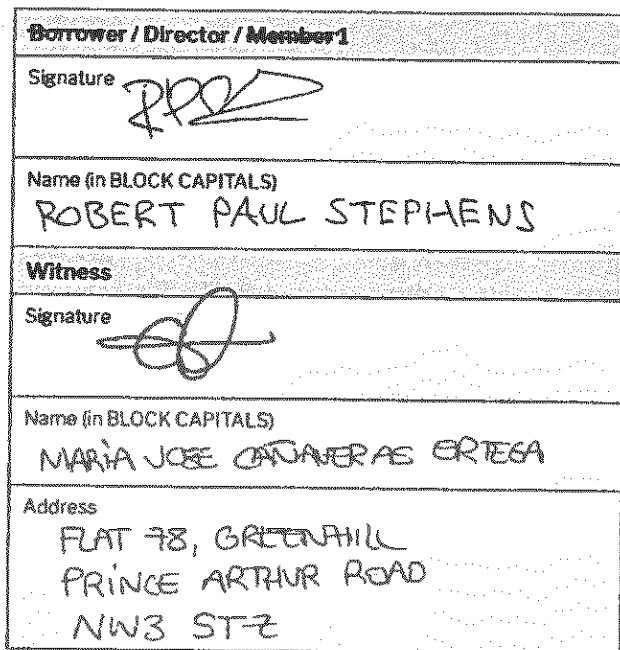 Borrower / Director / Member 1
Signature
Name (in BLOCK CAPITALS)
ROBERT PAUL STEPHENS
Witness
Signature
Name (in BLOCK CAPITALS)
MARIA JOSE CAÑAVERAS ORTEGA
Address
FLAT 78, GREENHILL
PRINCE ARTHUR ROAD
NW3 5TZ